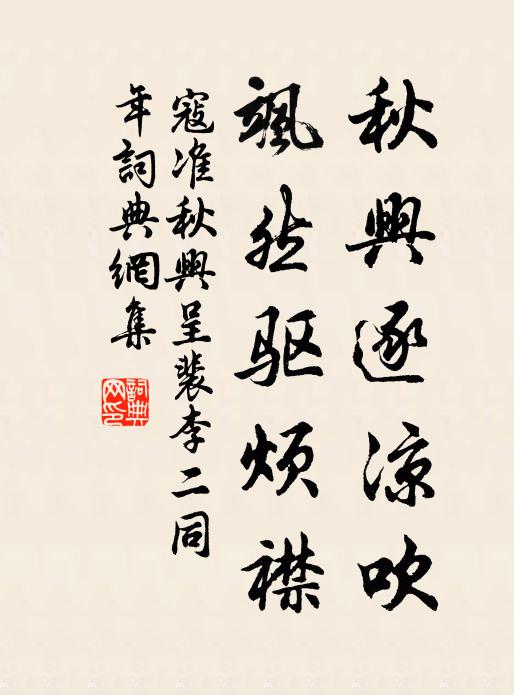 秋興逐涼吹
颯然驱煩襟
寇准秋興呈裴李二同
年詞典網集
詞典
网印